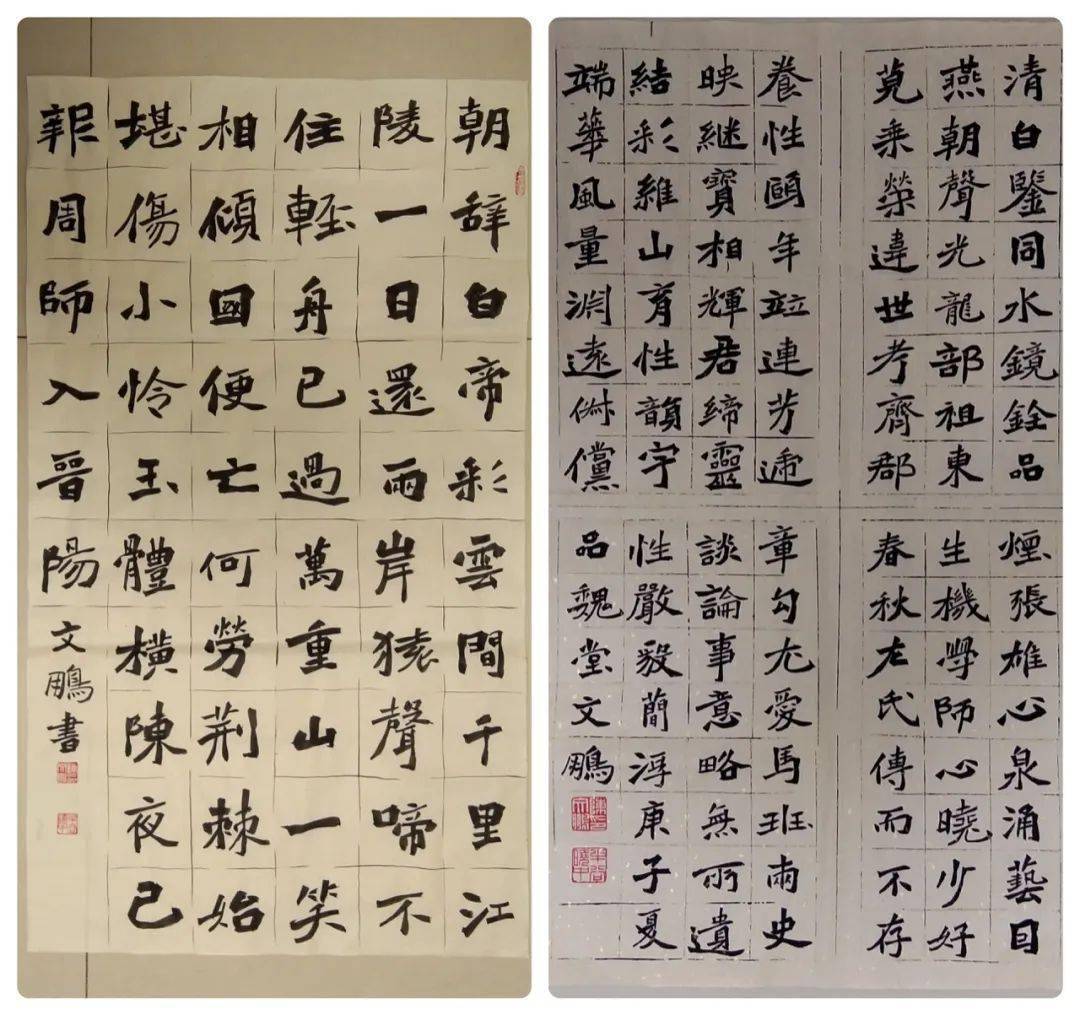 朝辭白帝彩雲間千里江
陵一日還兩岸猿聲啼不
住輕舟已過萬重山一笑
相傾國便亡何勞荊棘始
堪傷小怜玉體橫陳夜已
報周師入晉陽
文鵬書
清白鑒同水鏡銓品
燕朝聲光龍部祖東
莧乘榮違世考齊郡
養性頤年竝連芳遞
映繼寶相輝君締靈
結彩維山育性韻宇
端華風量淵遠俶儻
煙張雄心泉涌藝囙
生機學師心曉少好
春秋左氏傳而不存
章勾尤愛馬班兩史
談論事意略無所遺
性嚴毅簡浮庚子夏
品魏堂文鵬